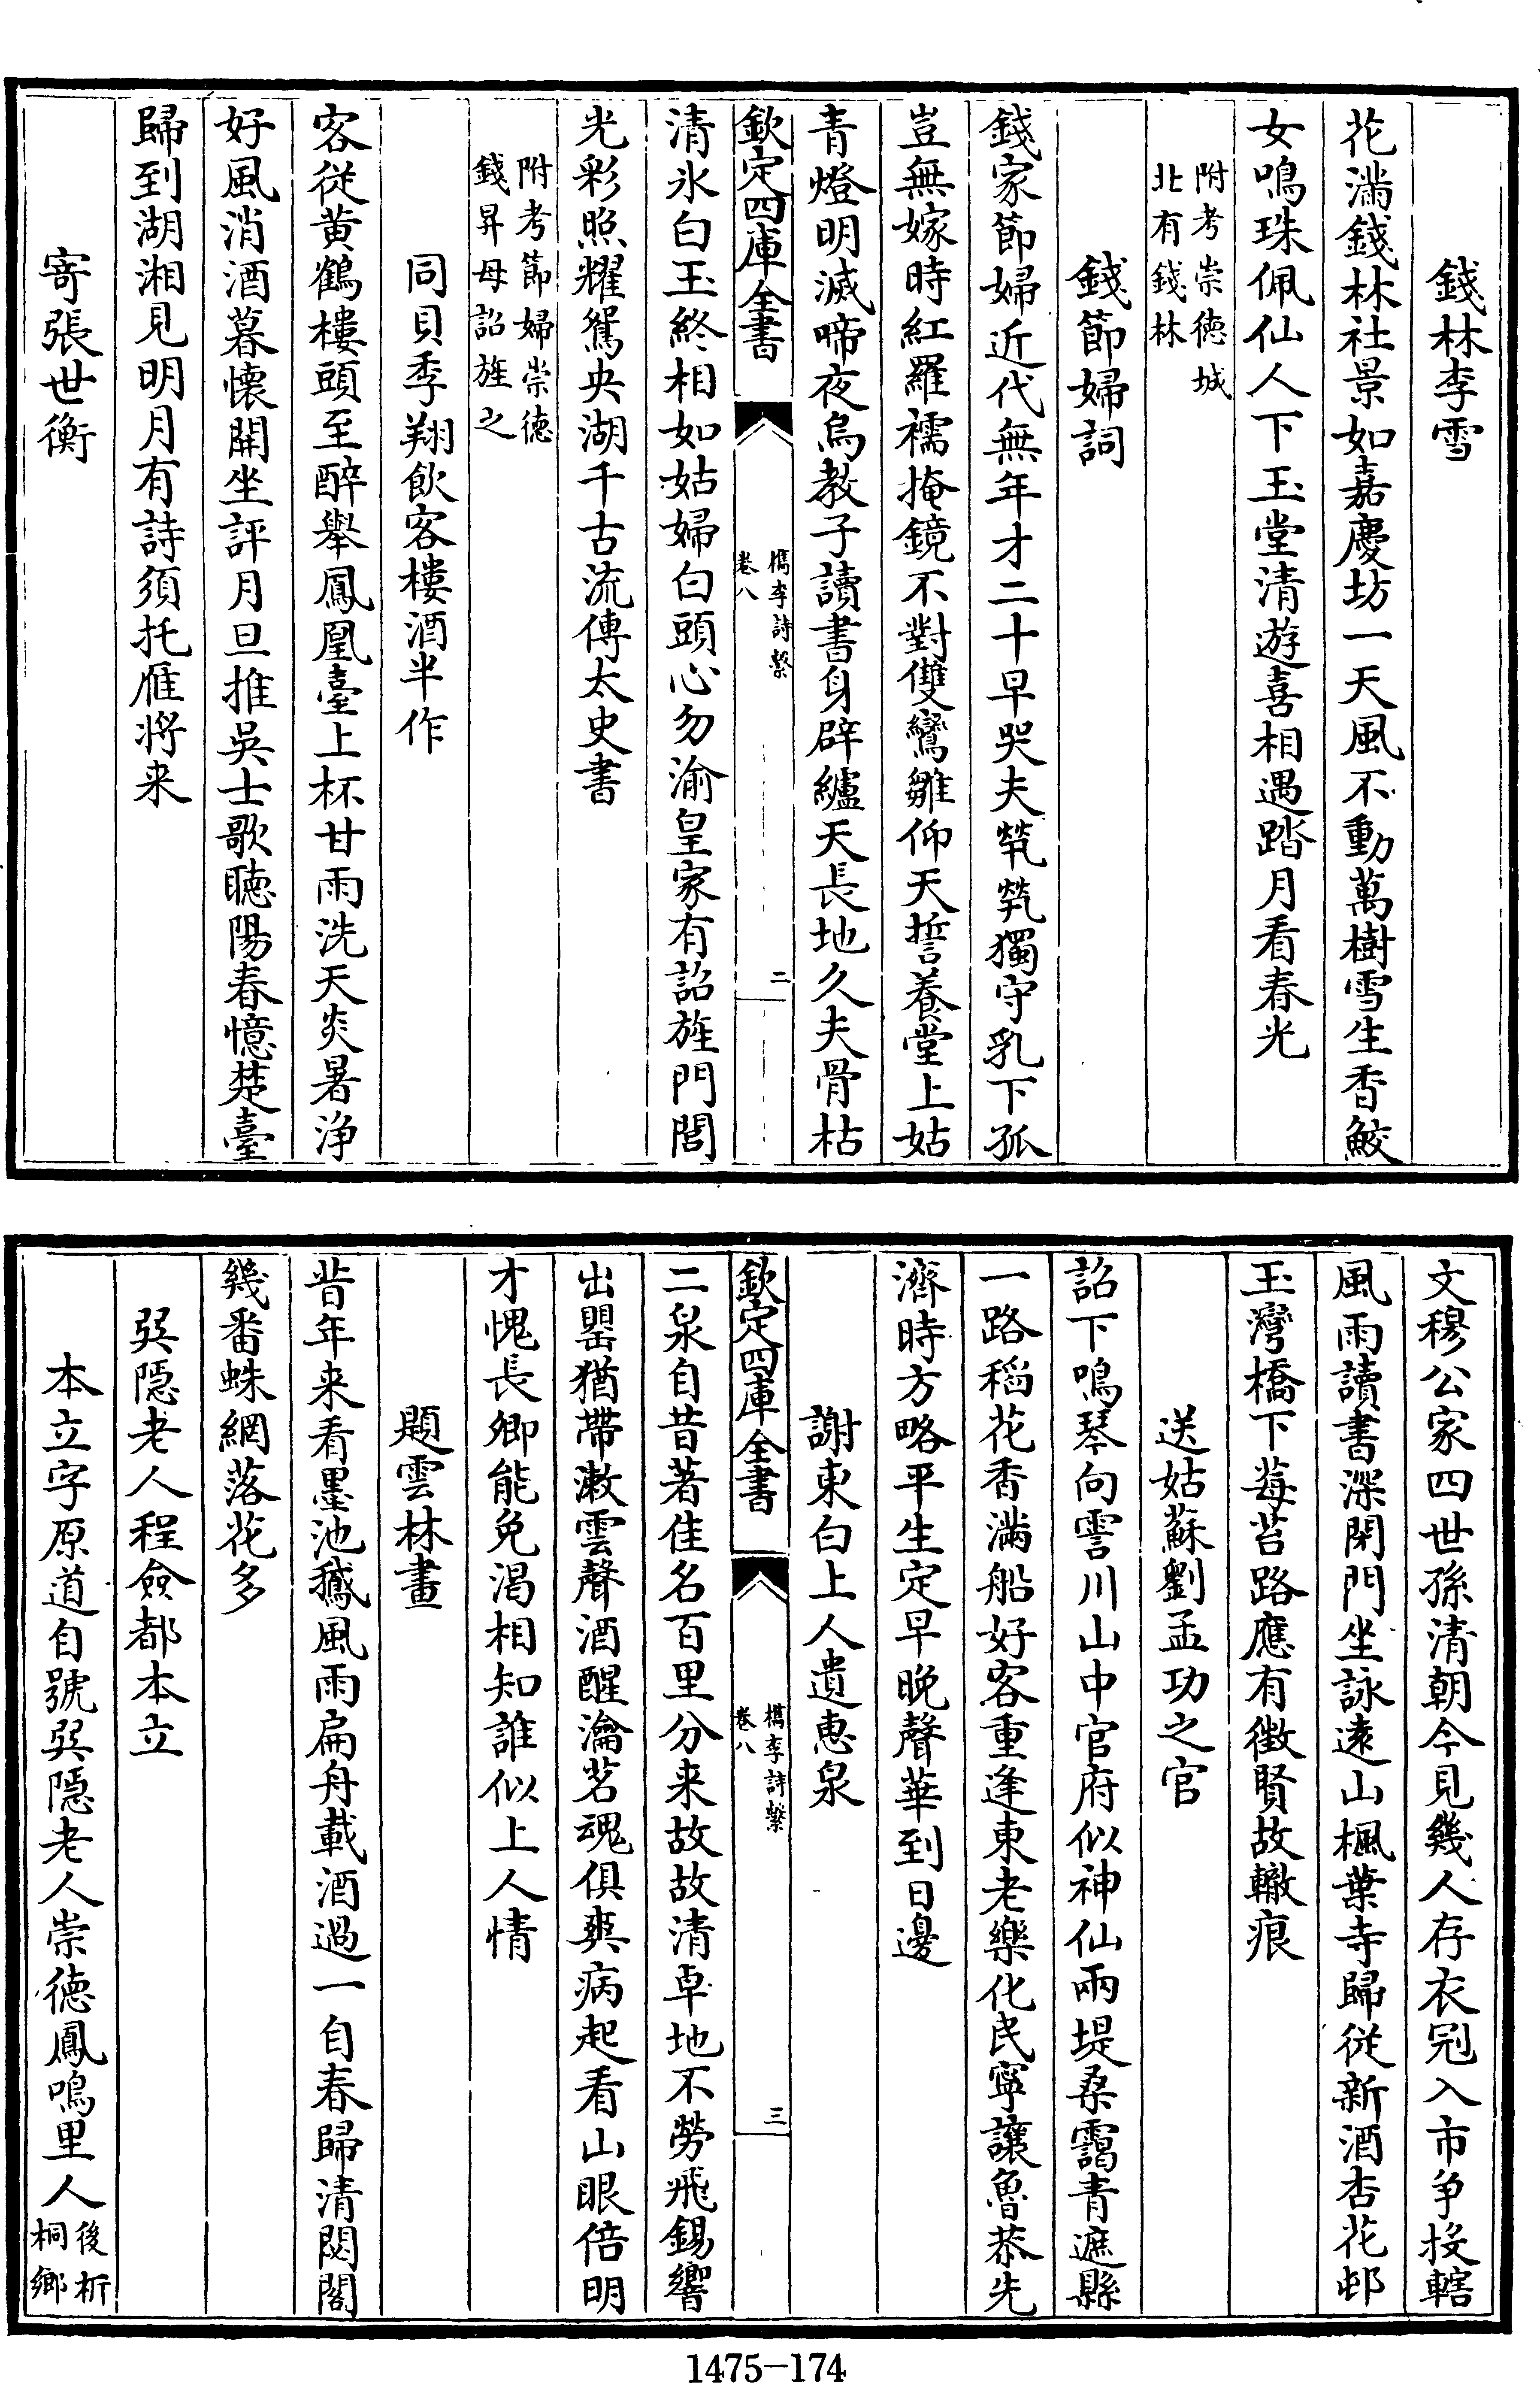 錢林李雪
花滿錢林社景如嘉慶坊一天風不動萬樹雪生香鮫
女鳴珠佩仙人下玉堂清遊喜相遇踏月看春光
附考崇徳城
北有錢林
錢節婦詞
錢家節婦近代無年才二十早哭夫煢煢獨守乳下孤
豈無嫁時紅羅襦掩鏡不對雙鸞雛仰天誓養堂上姑
青燈明滅啼夜烏教子讀書身辟纑天長地久夫骨枯
欽定四庫全書
檇李詩繫
卷八
二
清氷白玉終相如姑婦白頭心勿渝皇家有詔旌門閭
光彩照耀鴛央湖千古流傳太史書
附考節婦崇徳
錢昇母詔旌之
同貝季翔飲客樓酒半作
客從黄鶴樓頭至醉舉鳳凰臺上杯甘雨洗天炎暑浄
好風消酒暮懐開坐評月旦推吳士歌聽陽春憶楚臺
歸到湖湘見明月有詩須托雁將来
寄張世衡
文穆公家四世孫清朝今見幾人存衣冠入市争投轄
風雨讀書深閉門坐詠遠山楓葉寺歸從新酒杏花邨
玉灣橋下莓苔路應有徴賢故轍痕
送姑蘇劉孟功之官
詔下鳴琴向霅川山中官府似神仙兩堤桑靄青遮縣
一路稻花香滿船好客重逢東老樂化民寧讓魯恭先
濟時方略平生定早晚聲華到日邊
謝東白上人遺惠泉
欽定四庫全書
檇李詩繫
卷八
三
二泉自昔著佳名百里分来故故清卓地不勞飛錫響
出罌猶帶漱雲聲酒醒瀹茗魂俱爽病起看山眼倍明
才愧長卿能免渴相知誰似上人情
題雲林畫
昔年来看墨池鵞風雨扁舟載酒過一自春歸清閟閣
幾番蛛網落花多
巽隠老人程僉都本立
本立字原道自號巽隠老人崇徳鳳鳴里人
後析
桐鄉
1475-174